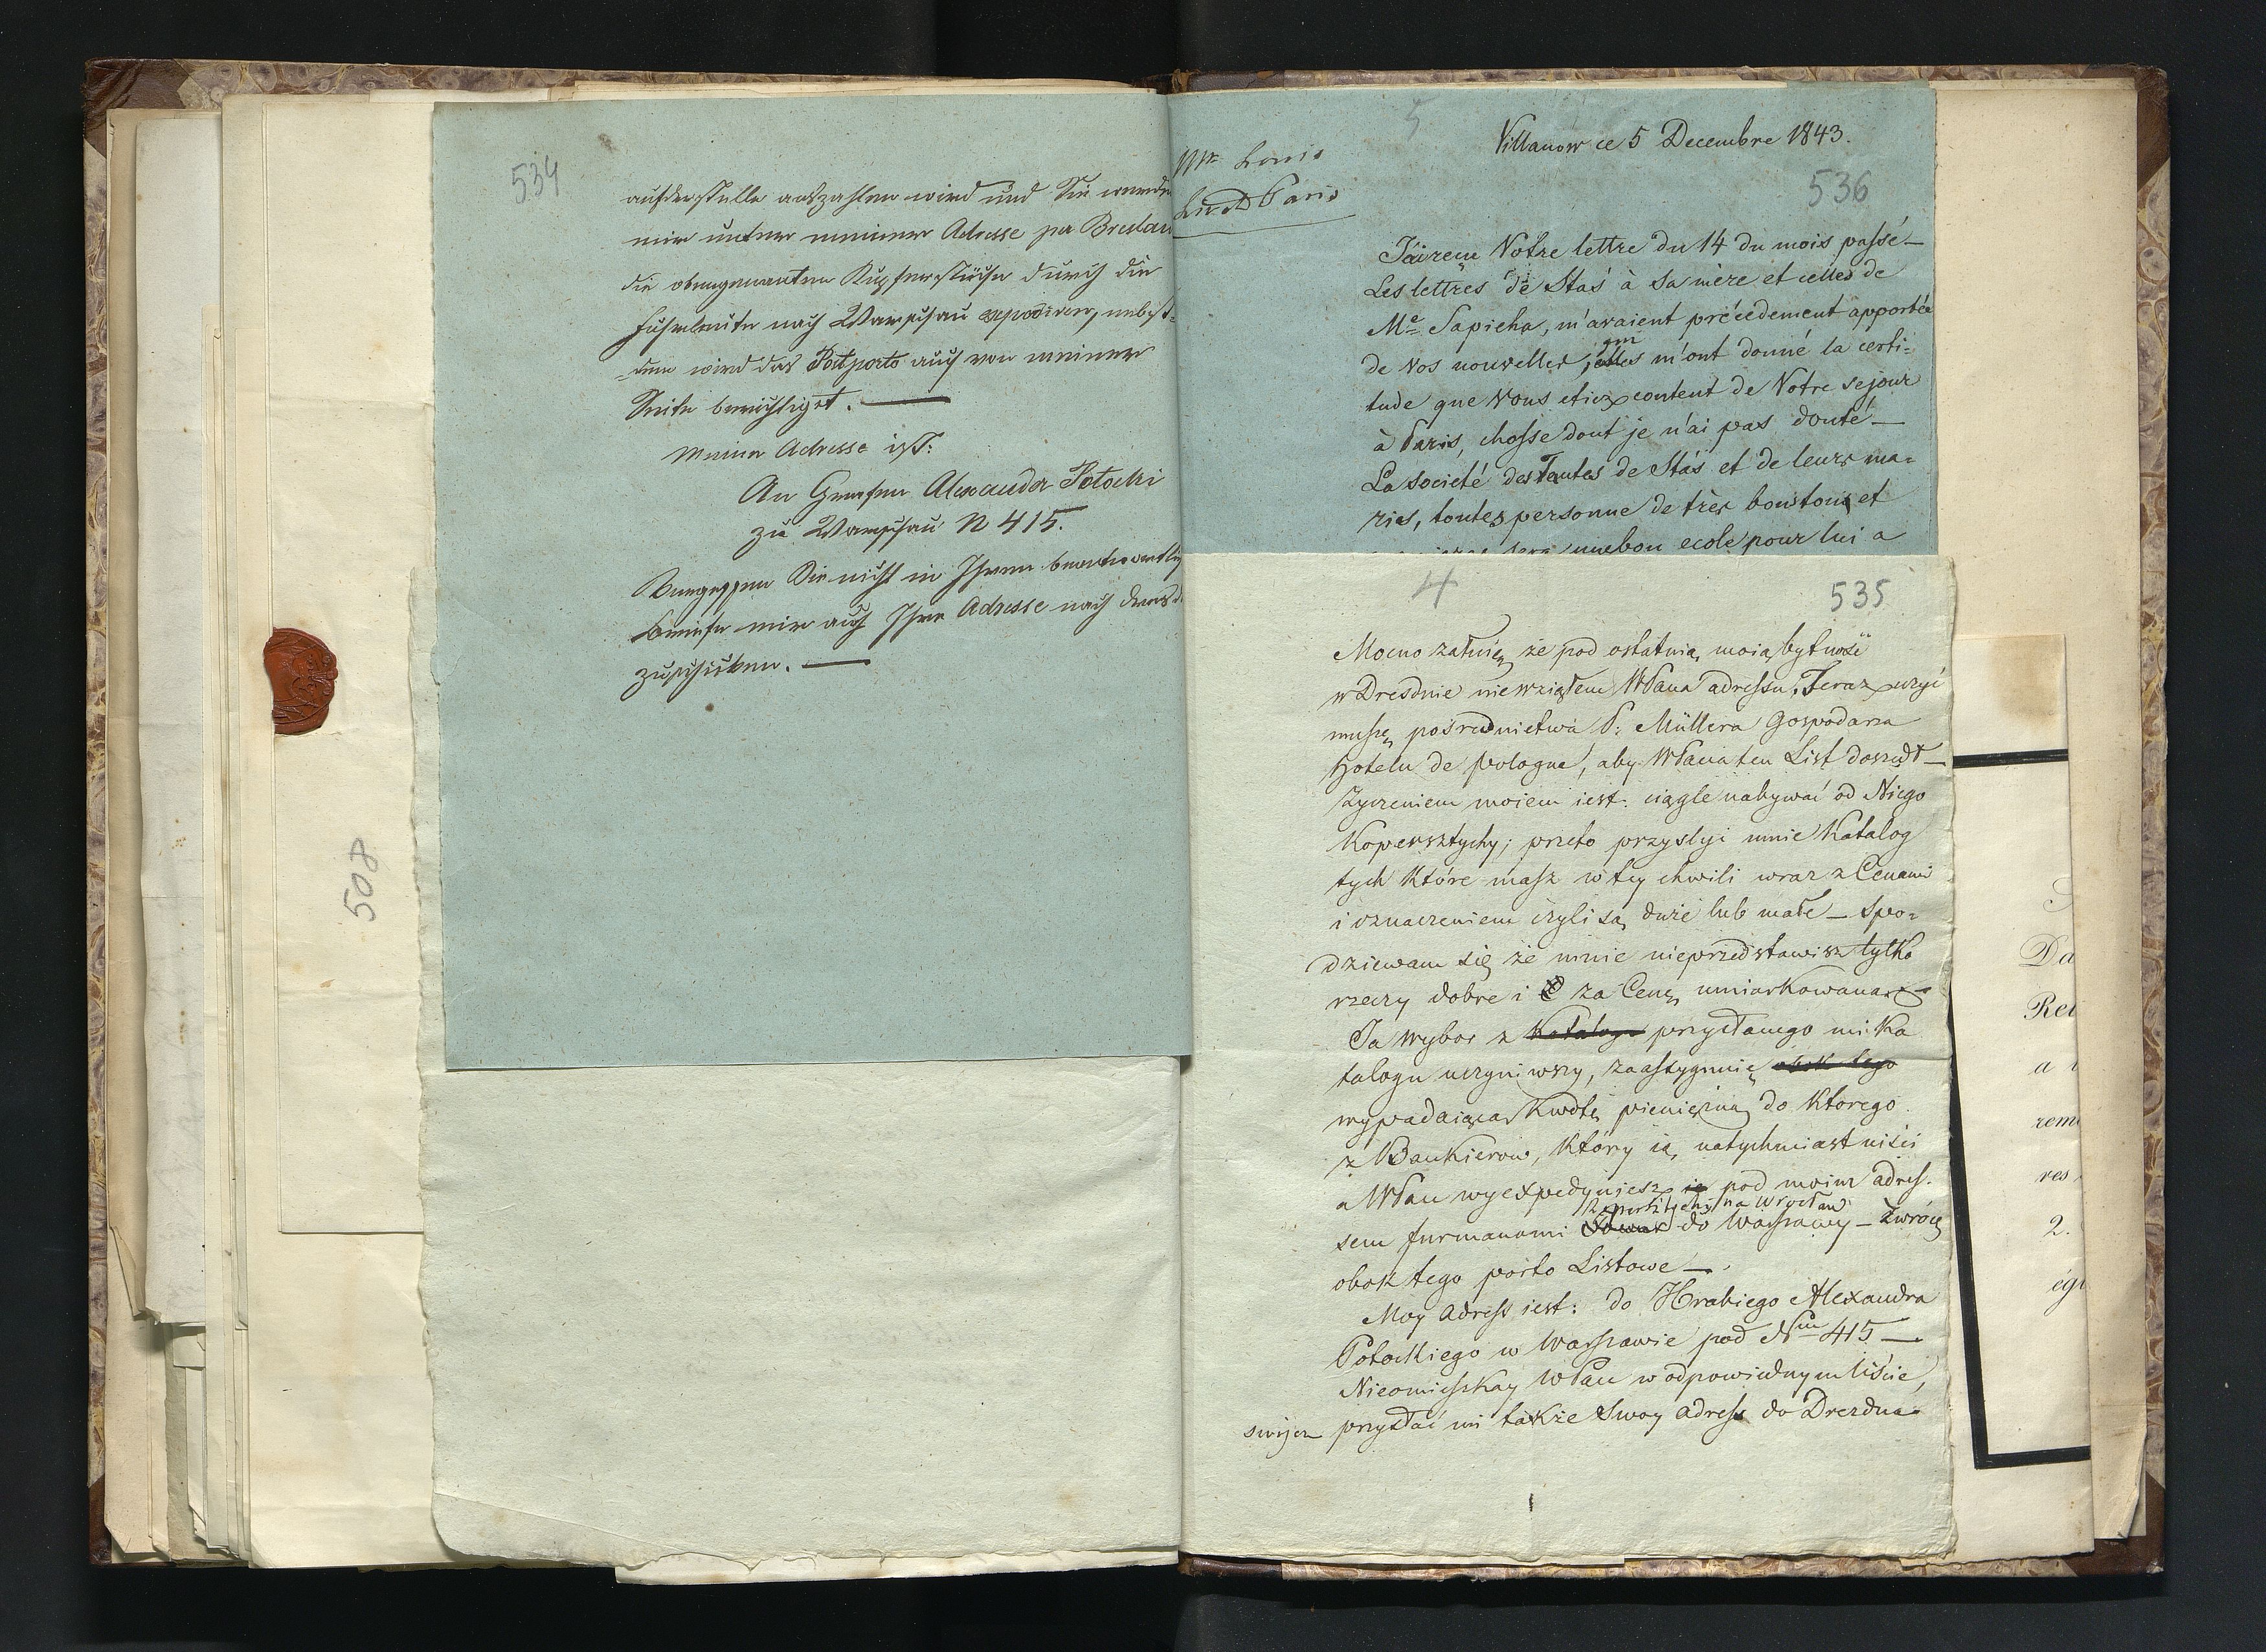 534
auf der Stelle auszahlen wird und Sie werden
mir unter meiner Adresse per Breslau
die obengenanten Kupferstiche durch die
Fuhrleute nach Warschau expediren, nebst-
dem wird das Postporto auch von meiner
Seite berichtiget. —
Meine Adresse ist:
An Grafen Alexander Potocki
zu Warschau N 415.
Vergessen Sie nicht in Ihrem beantwortlich
Briefe mir auch Ihre Adresse nach Dresd
zuschicken. —
508
5
Villanow ce 5 Decembre 1843.
536
Mr Louis
Paris
J'ai recu Votre lettre du 14 du mois passé —
Les lettres de Stas à sa mère et celles de
Me Sapieha, m'avaient précedement apportée
de vos nouvelles, elles m'ont donné la certi-
tude que Vous etiez content de Votre sejour
à Paris, chosse dont je n'ai pas douté —
La societé des Tantes de Stás et de leurs ma-
ries, toutes personne de très bons tons et
sera une bon ecole pour lui a
4
535
Mocno załuię że pod ostatnią moią bytność
w Dresdnie niewziąłem WPana adressu. Teraz użyć
muszę pośrednictwa P: Müllera Gospodarza
Hotelu de pologne, aby WPana ten List doszedł —
Życzeniem moiem iest: ciągle nabywać od Niego
Kopersztychy; przeto przyslyi mnie Katalog
tych które masz w tey chwili wraz z Cenami
i oznaczeniem czyli są duże lub małe — Spo-
dziewam się że mnie nieprzedstawisz tylko
rzeczy dobre i za Cenę umiarkowaną
Ja wybor z Katalogu przysłanego mi Ka
talogu uczyniwszy, zaassygnuię obok tego
wypadaiącą Kwotę pieniężną do Ktorego
z Bankierow, Który ią natychmiast uiści
a WPan wyexpedyuiesz ie pod moim adres-
Kopersztychy na Wrocław
sem furmanami do Warszawy — Zwrócę
obok tego porto Listowe —
Moy adress iest: do Hrabiego Alexandra
Potockiego w Warszawie pod Nrm 415 —
Nieomieszkay WPan w odpowiednym liście,
swojem przysłać mi także Swoy adress do Drezdna
Da
Rei
a
rem
res
2.
égi